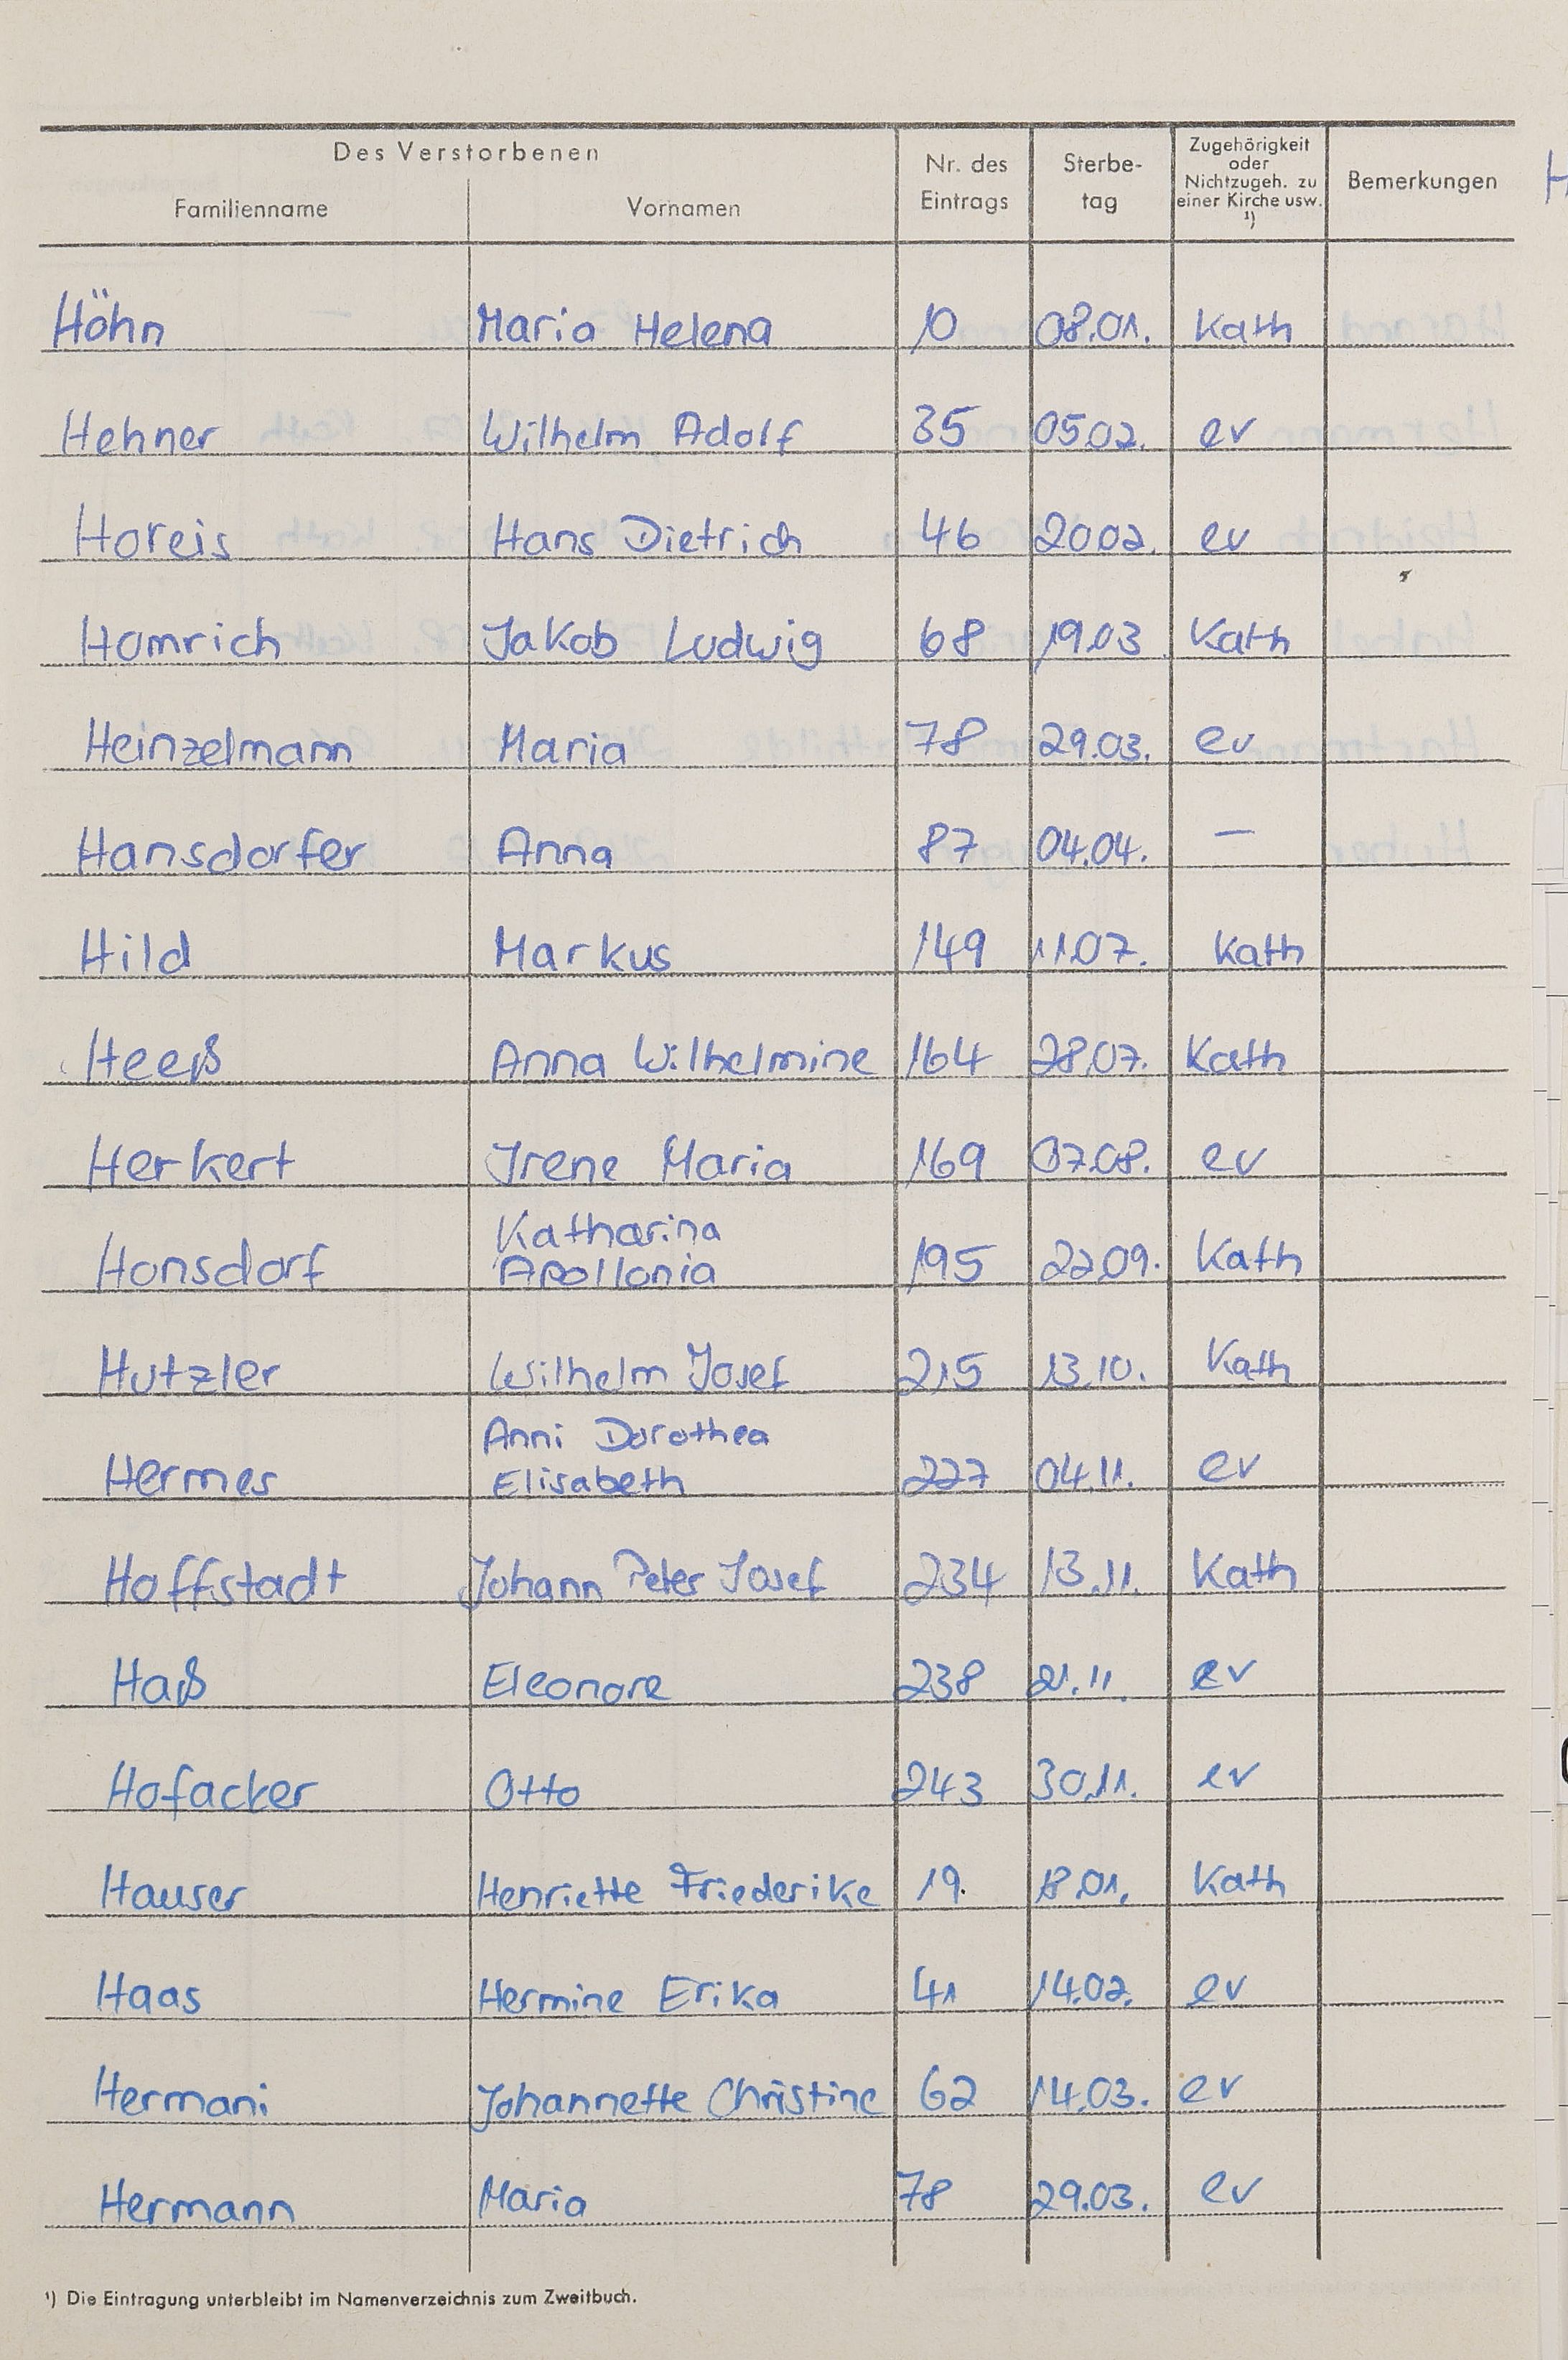 Des Verstorbenen
Familienname Vornamen Nr. des Eintrags Sterbe-tag Zugehörigkeit oder Nichtzugeh. zu einer Kirche usw. ¹) Bemerkungen
H
Höhn Maria Helena 10 08.01. Kath
Hehner Wilhelm Adolf 35 05.02. ev
Horeis Hans Dietrich 46 20.02. ev
Homrich Jakob Ludwig 68 19.03 Kath
Heinzelmann Maria 78 29.03. ev
Hansdorfer Anna 87 04.04. —
Hild Markus 149 11.07. Kath
Heeß Anna Wilhelmine 164 28.07. Kath
Herkert Irene Maria 169 07.08. ev
Katharina
Honsdorf Apollonia 195 22.09. Kath
Hutzler Wilhelm Josef 215 13.10. Kath
Anni Dorothea
Hermes Elisabeth 227 04.11. ev
Hoffstadt Johann Peter Josef 234 13.11. Kath
Haß Eleonore 238 21.11. ev
Hofacker Otto 243 30.11. ev
Hauser Henriette Friederike 19. 18.01. Kath
Haas Hermine Erika 41 14.02. ev
Hermani Johannette Christine 62 14.03. ev
Hermann Maria 78 29.03. ev
¹) Die Eintragung unterbleibt im Namenverzeichnis zum Zweitbuch.